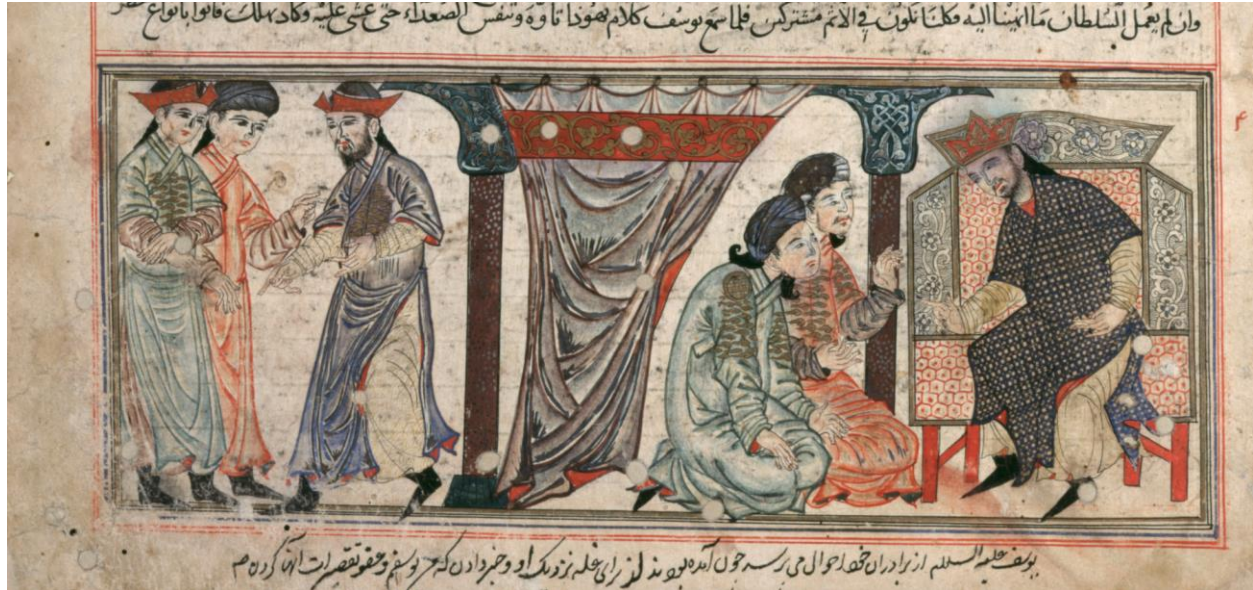 وان لم يعمل السلطان ما انهينا اليه فكلنا نكون في الاثم مشتركين فلما سمع يوسف كلام يهوذا تاوه وتنفس الصعداء حتى غشى عليه وكاد يهلك فاتوا بانواع
۴
يوسف عليه السلام از برادران خود احوال می پرسد چون آمده بودند از برای غله نزدیک او و خبر دادن که من یوسفم و عفو تقصیرات آنها کرده